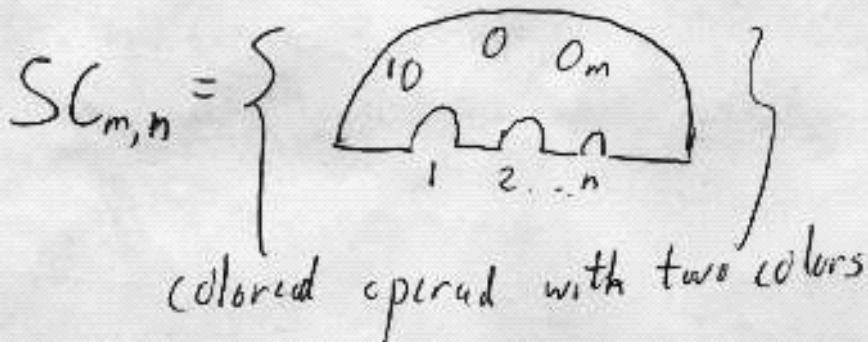 SC_{m,n} = {
1 m
1 2 ... n
}
colored operad with two colors